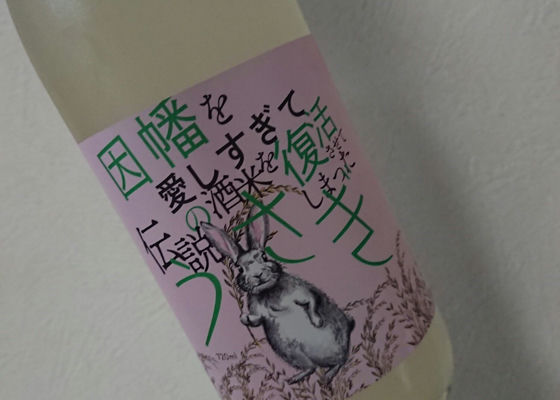 因幡を
愛しすぎて
伝説の酒米を
復活させて
しまった
うさぎ
720ml